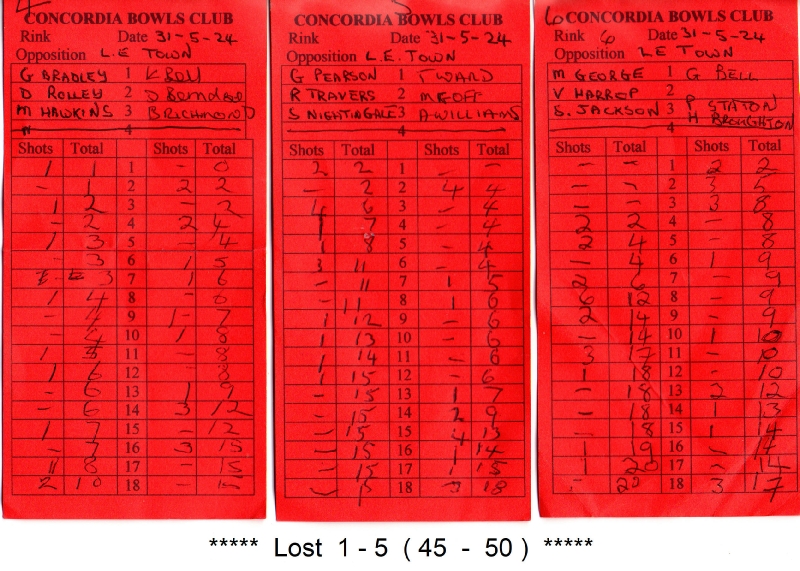 4
CONCORDIA BOWLS CLUB
Rink Date 31-5-24
Opposition L.E TOWN
G BRADLEY 1 K Roll
D ROLLEY 2
M HAWKINS 3 B RICHMOND
4
Shots Total Shots Total
1 1 1 - 0
- 1 2 2 2
1 2 3 - 2
- 2 4 2 4
1 3 5 - 4
- 3 6 1 5
- 3 7 1 6
1 4 8 - 6
- 4 9 1 7
- 4 10 1 8
1 5 11 - 8
1 6 12 - 8
- 6 13 1 9
- 6 14 3 12
1 7 15 - 12
- 7 16 3 15
1 8 17 - 15
2 10 18 - 15
5
CONCORDIA BOWLS CLUB
Rink Date 31-5-24
Opposition L.E. TOWN
G PEARSON 1 T WARD
R TRAVERS 2 M GOFF
S NIGHTINGALE 3 A WILLIAMS
4
Shots Total Shots Total
2 2 1 - -
- 2 2 4 4
4 6 3 - 4
1 7 4 - 4
1 8 5 - 4
3 11 6 - 4
- 11 7 1 5
- 11 8 1 6
1 12 9 - 6
1 13 10 - 6
1 14 11 - 6
1 15 12 - 6
- 15 13 1 7
- 15 14 2 9
- 15 15 4 13
- 15 16 1 14
- 15 17 1 15
- 15 18 3 18
6
CONCORDIA BOWLS CLUB
Rink 6 Date 31-5-24
Opposition LE TOWN
M GEORGE 1 G BELL
V HARROP 2
S. JACKSON 3 P STATON
H BROUGHTON
4
Shots Total Shots Total
- - 1 2 2
- - 2 3 5
- - 3 3 8
2 2 4 - 8
2 4 5 - 8
- 4 6 1 9
2 6 7 - 9
6 12 8 - 9
2 14 9 - 9
- 14 10 1 10
3 17 11 - 10
1 18 12 - 10
- 18 13 2 12
- 18 14 1 13
- 18 15 1 14
1 19 16 - 14
1 20 17 - 14
- 20 18 3 17
***** Lost 1 - 5 ( 45 - 50 ) *****